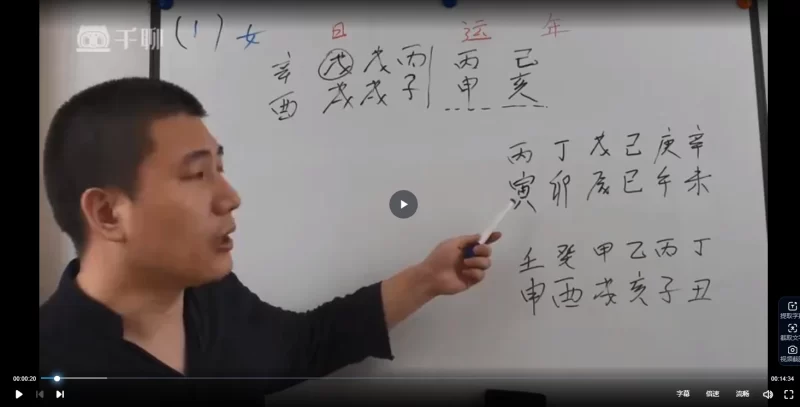 千聊
(1) 女 日 运 年
辛 戊 戊 丙 丙 己
酉 戌 戌 子 申 亥
丙 丁 戊 己 庚 辛
寅 卯 辰 巳 午 未
壬 癸 甲 乙 丙 丁
申 酉 戌 亥 子 丑
提取字
截取文
视频截
00:00:20
00:14:34
字幕 倍速 流畅